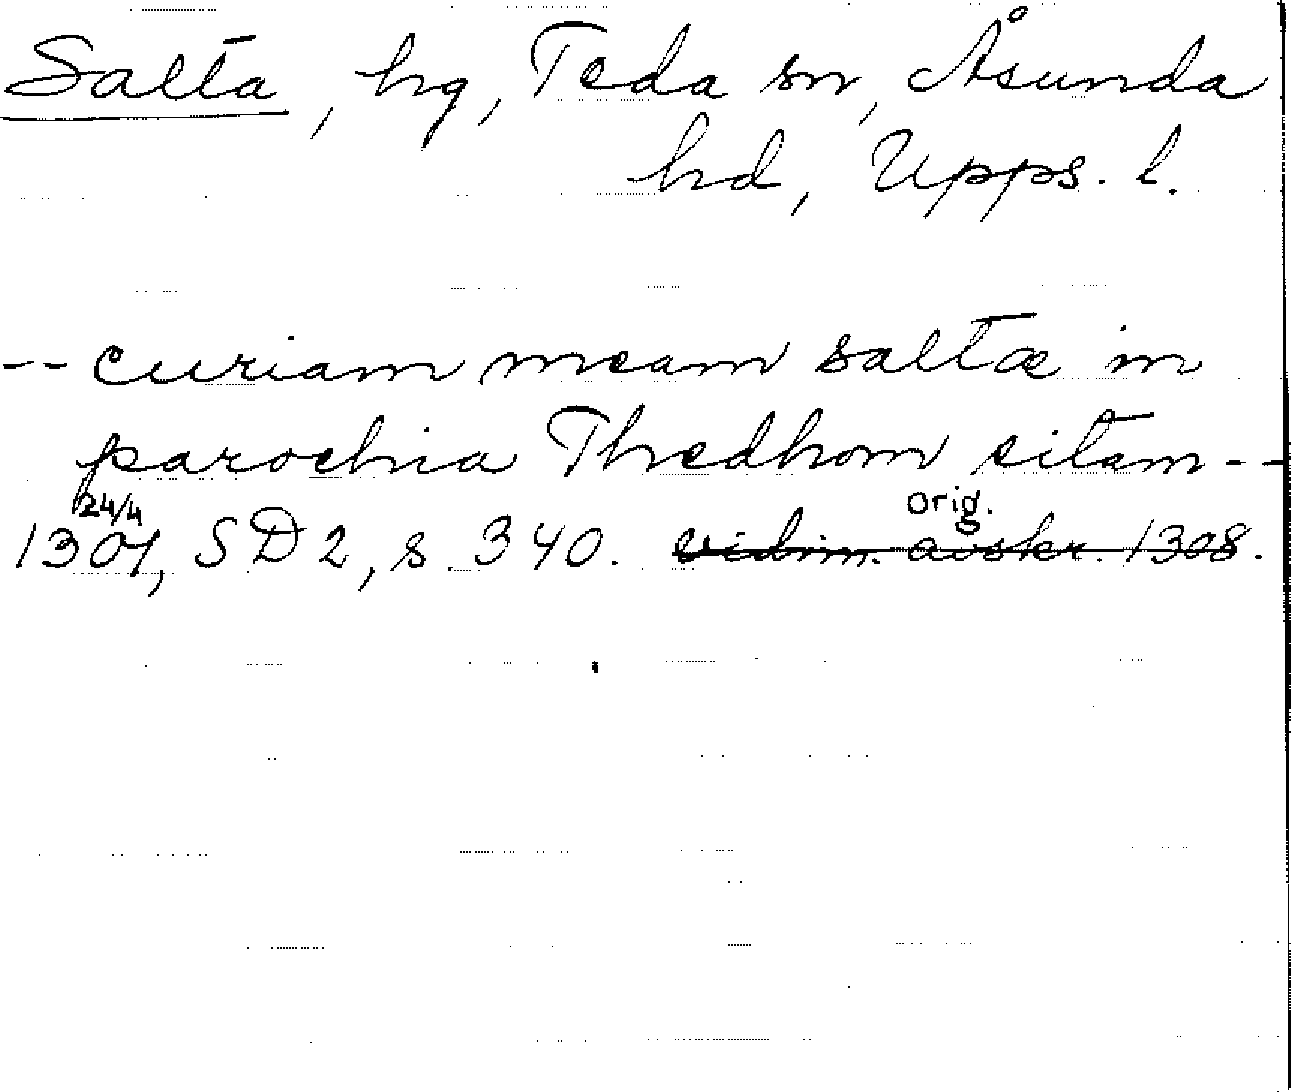 Salta, hg, Teda sn, Åsunda
hd, Upps. l.
-- curiam meam saltæ in
parochia Thedhom sitam --
24/4 orig.
1307, SD 2, s. 340. vidim. avskr. 1308.